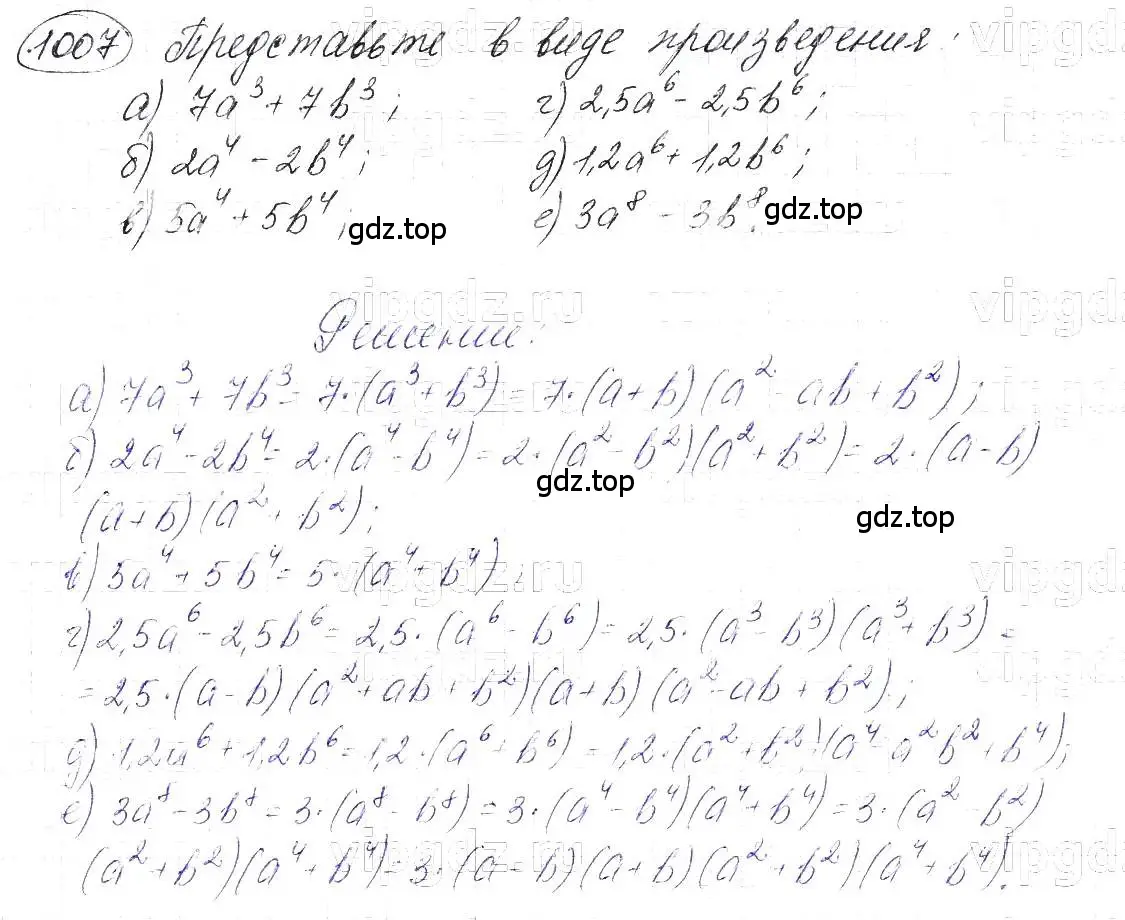 1007 Представьте в виде произведения:
а) 7a³ + 7b³; г) 2,5a⁶ - 2,5b⁶;
б) 2a⁴ - 2b⁴; д) 1,2a⁶ + 1,2b⁶;
в) 5a⁴ + 5b⁴; е) 3a⁸ - 3b⁸.
gdz.top gdz.top
vipgdz.ru vipgdz
Решение:
а) 7a³ + 7b³ = 7·(a³ + b³) = 7·(a + b)(a² - ab + b²);
б) 2a⁴ - 2b⁴ = 2·(a⁴ - b⁴) = 2·(a² - b²)(a² + b²) = 2·(a - b)
gdz.top
(a + b)(a² + b²);
gdz.top
в) 5a⁴ + 5b⁴ = 5·(a⁴ + b⁴);
г) 2,5a⁶ - 2,5b⁶ = 2,5·(a⁶ - b⁶) = 2,5·(a³ - b³)(a³ + b³) =
= 2,5·(a - b)(a² + ab + b²)(a + b)(a² - ab + b²);
д) 1,2a⁶ + 1,2b⁶ = 1,2·(a⁶ + b⁶) = 1,2·(a² + b²)(a⁴ - a²b² + b⁴);
е) 3a⁸ - 3b⁸ = 3·(a⁸ - b⁸) = 3·(a⁴ - b⁴)(a⁴ + b⁴) = 3·(a² - b²)
(a² + b²)(a⁴ + b⁴) = 3·(a - b)(a + b)(a² + b²)(a⁴ + b⁴).